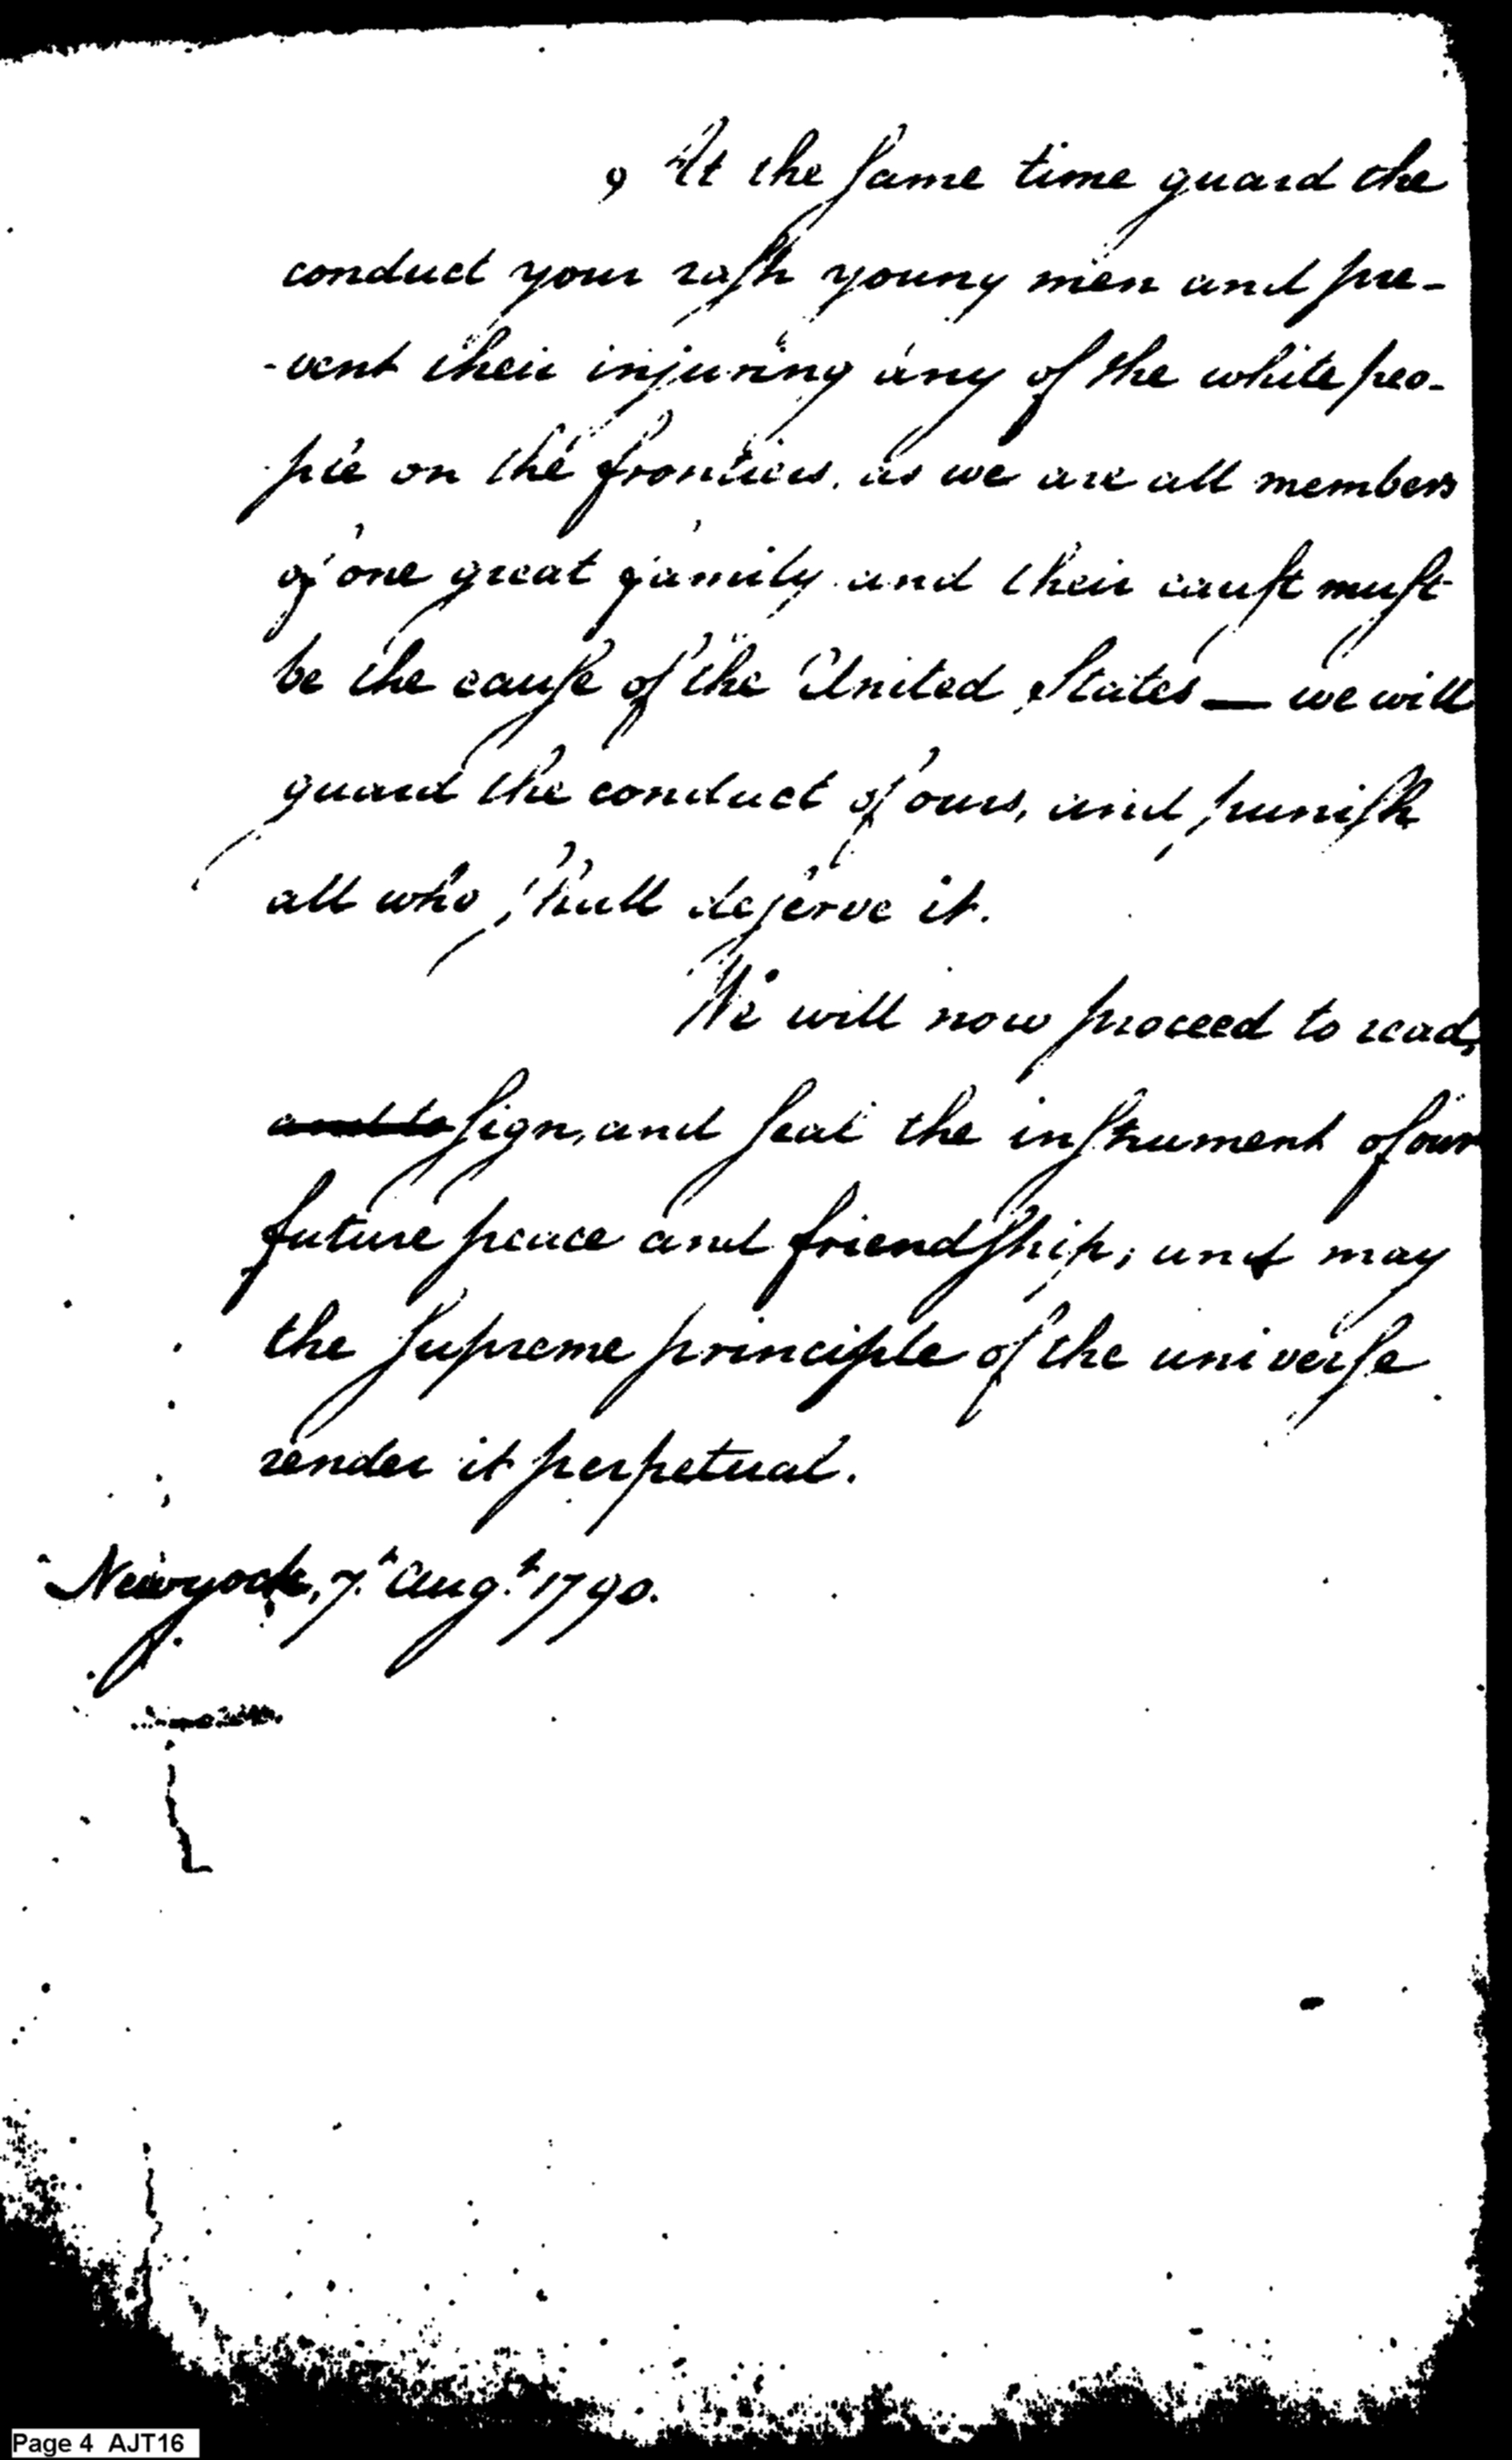 , At the same time guard the
conduct your rash young men and pre-
-vent their injuring any of the white peo-
ple on the frontiers, as we are all members
of one great family and their cause must
be the cause of the United States — we will
guard the conduct of ours, and punish
all who shall deserve it.
We will now proceed to read,
and to sign, and seal the instrument of our
future peace and friendship; and may
the supreme principle of the universe
render it perpetual.
Newyork, 7.h Aug.t 1790.
Page 4 AJT16